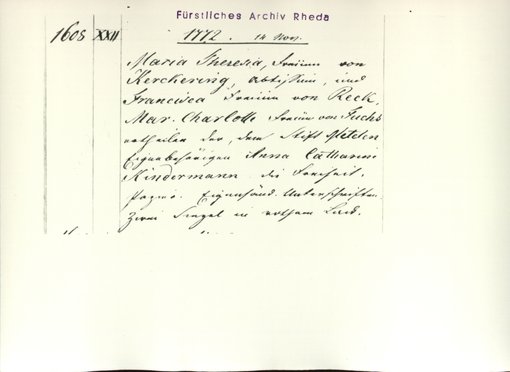 Fürstliches Archiv Rheda
1608 XXII 1772. 14 Nov.
Maria Theresia, Freiinn von
Kerckering, Abtissin, und
Francisca Freiinn von Reck,
Mar. Charlotte Freiin von Fuchs
ertheilen der, dem Stift Metelen
Eigenbehörigen Anna Catharine
Kindermann die Freiheit.
Eigenhänd. Unterschriften.
Zwei Siegel in rothem Lack.